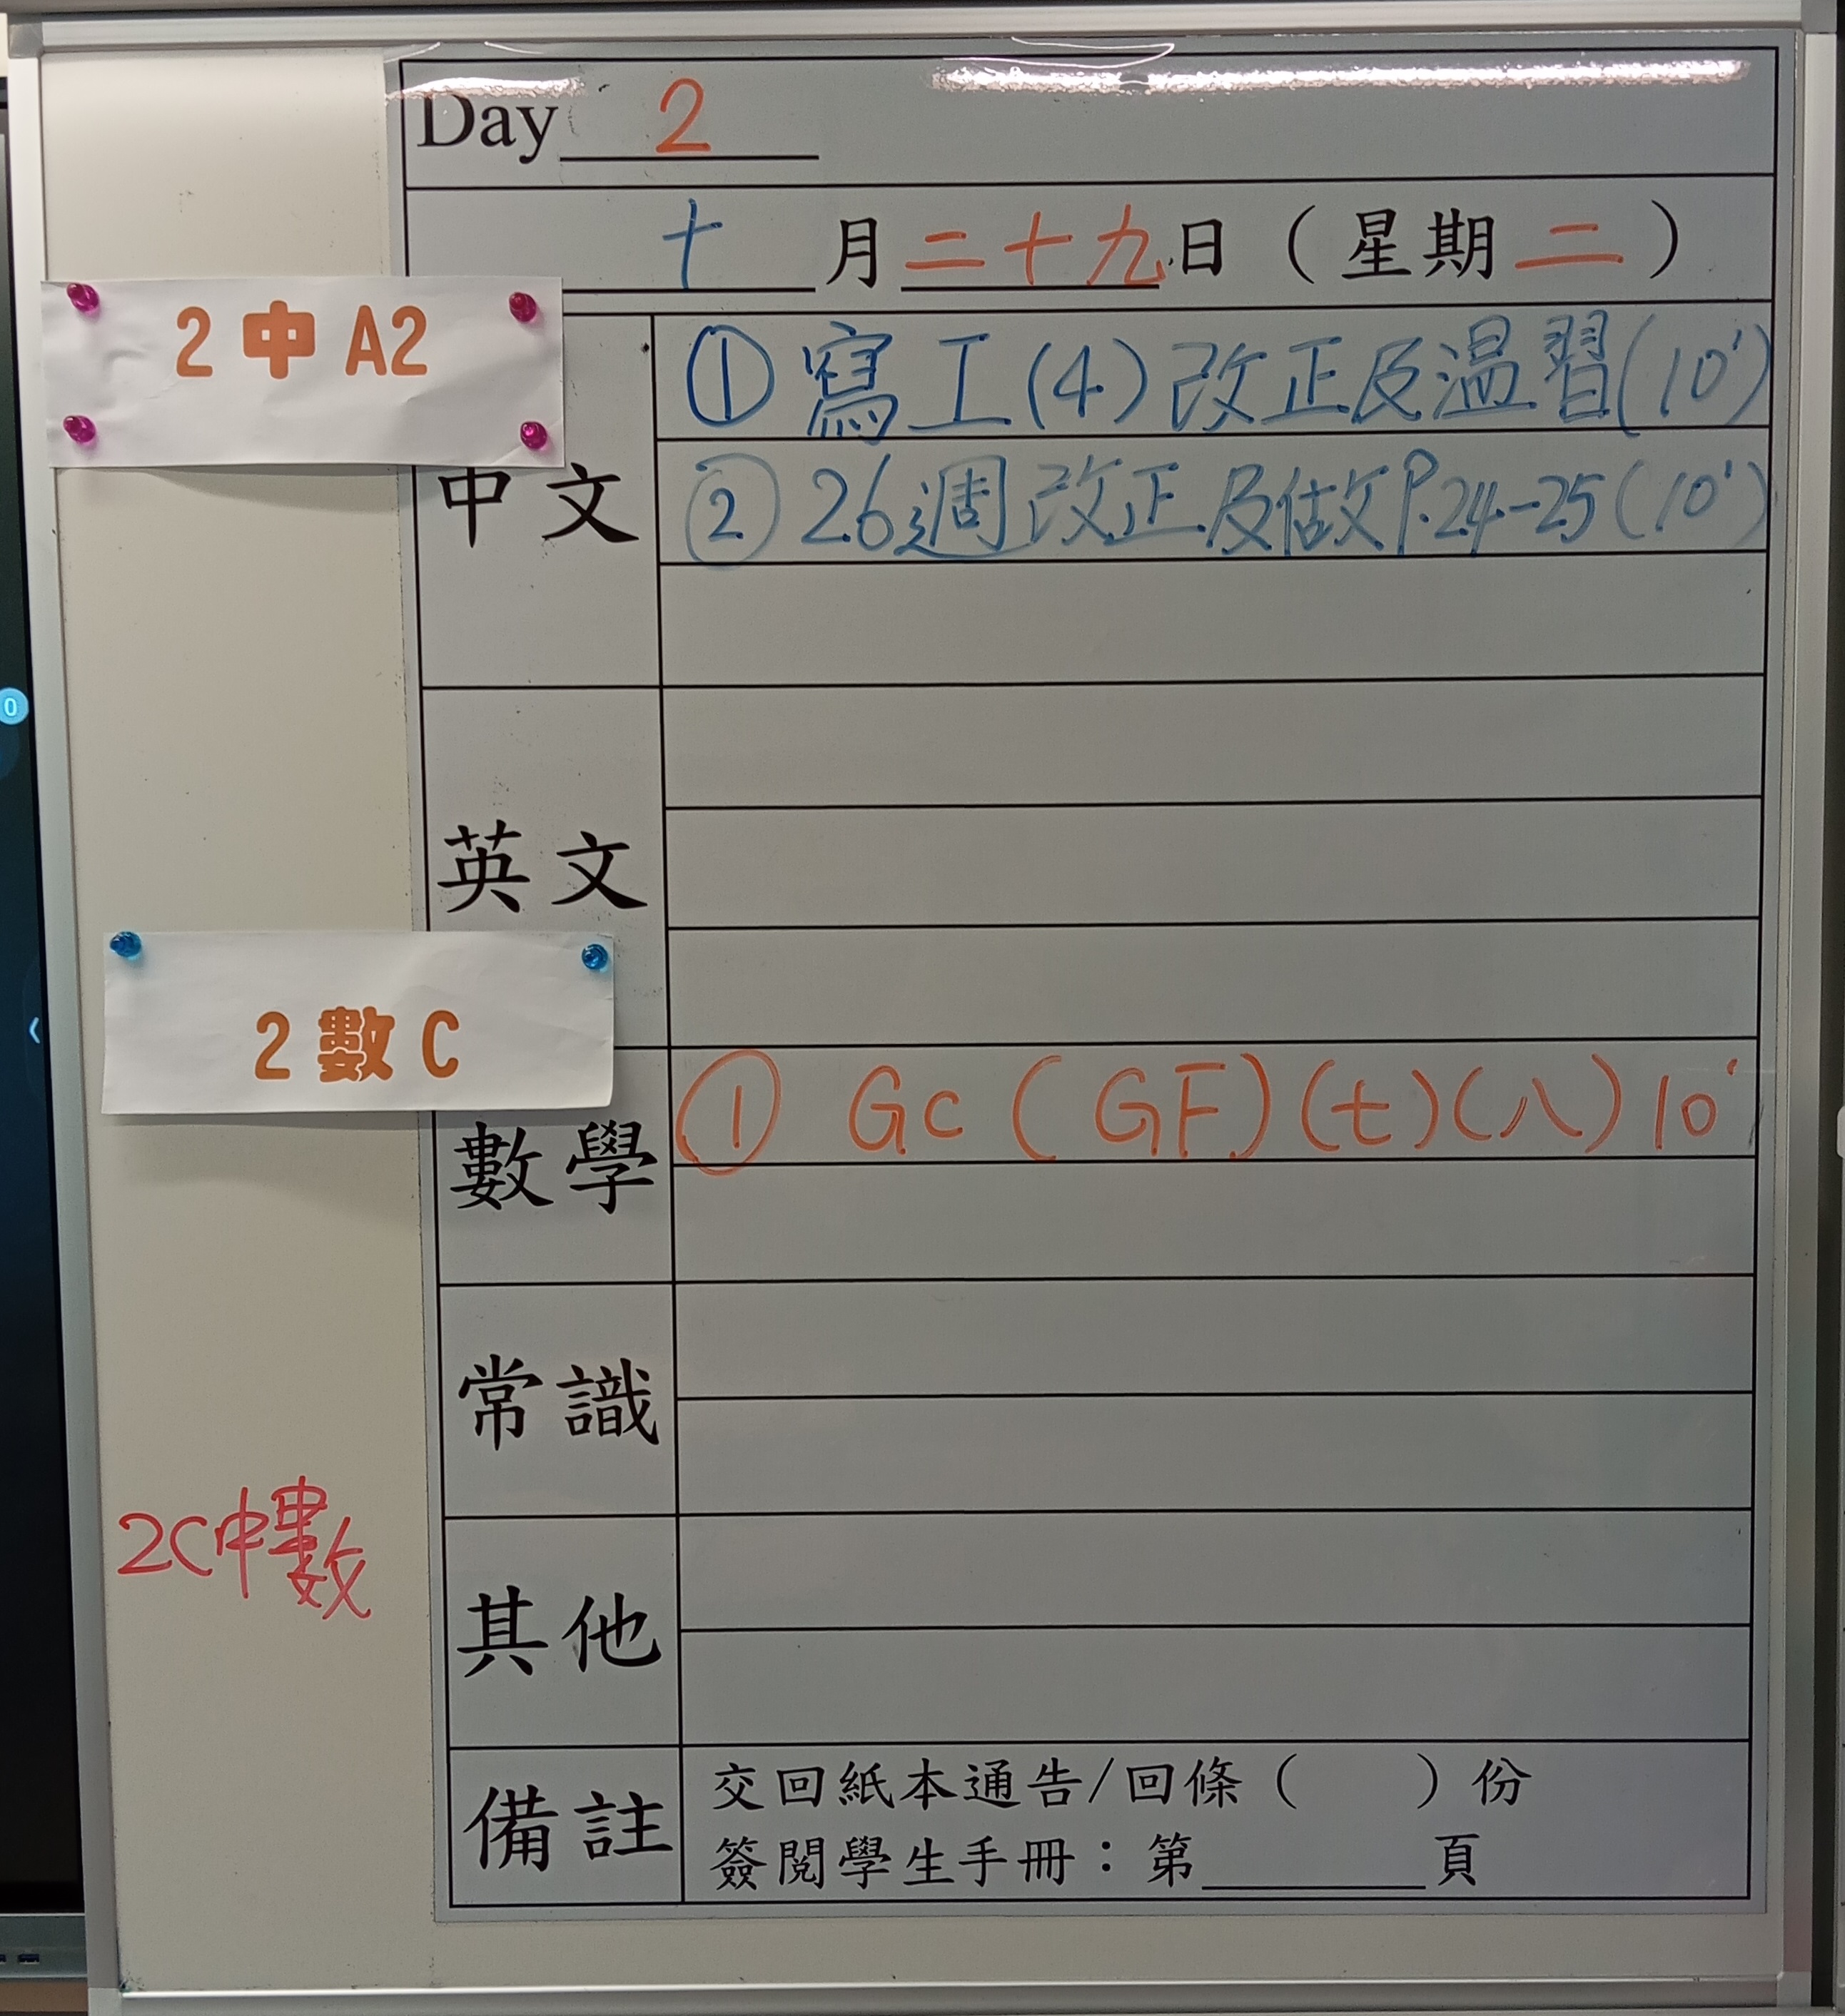 Day 2
十月二十九日（星期二）
2 中 A2
中文
① 寫工(4)改正及温習(10')
② 26週改正及做P.24-25(10')
英文
2 數 C
數學
① GC (GF)(七)(八)10'
常識
2C中數
其他
備註
交回紙本通告/回條（　　）份
簽閱學生手冊：第______頁